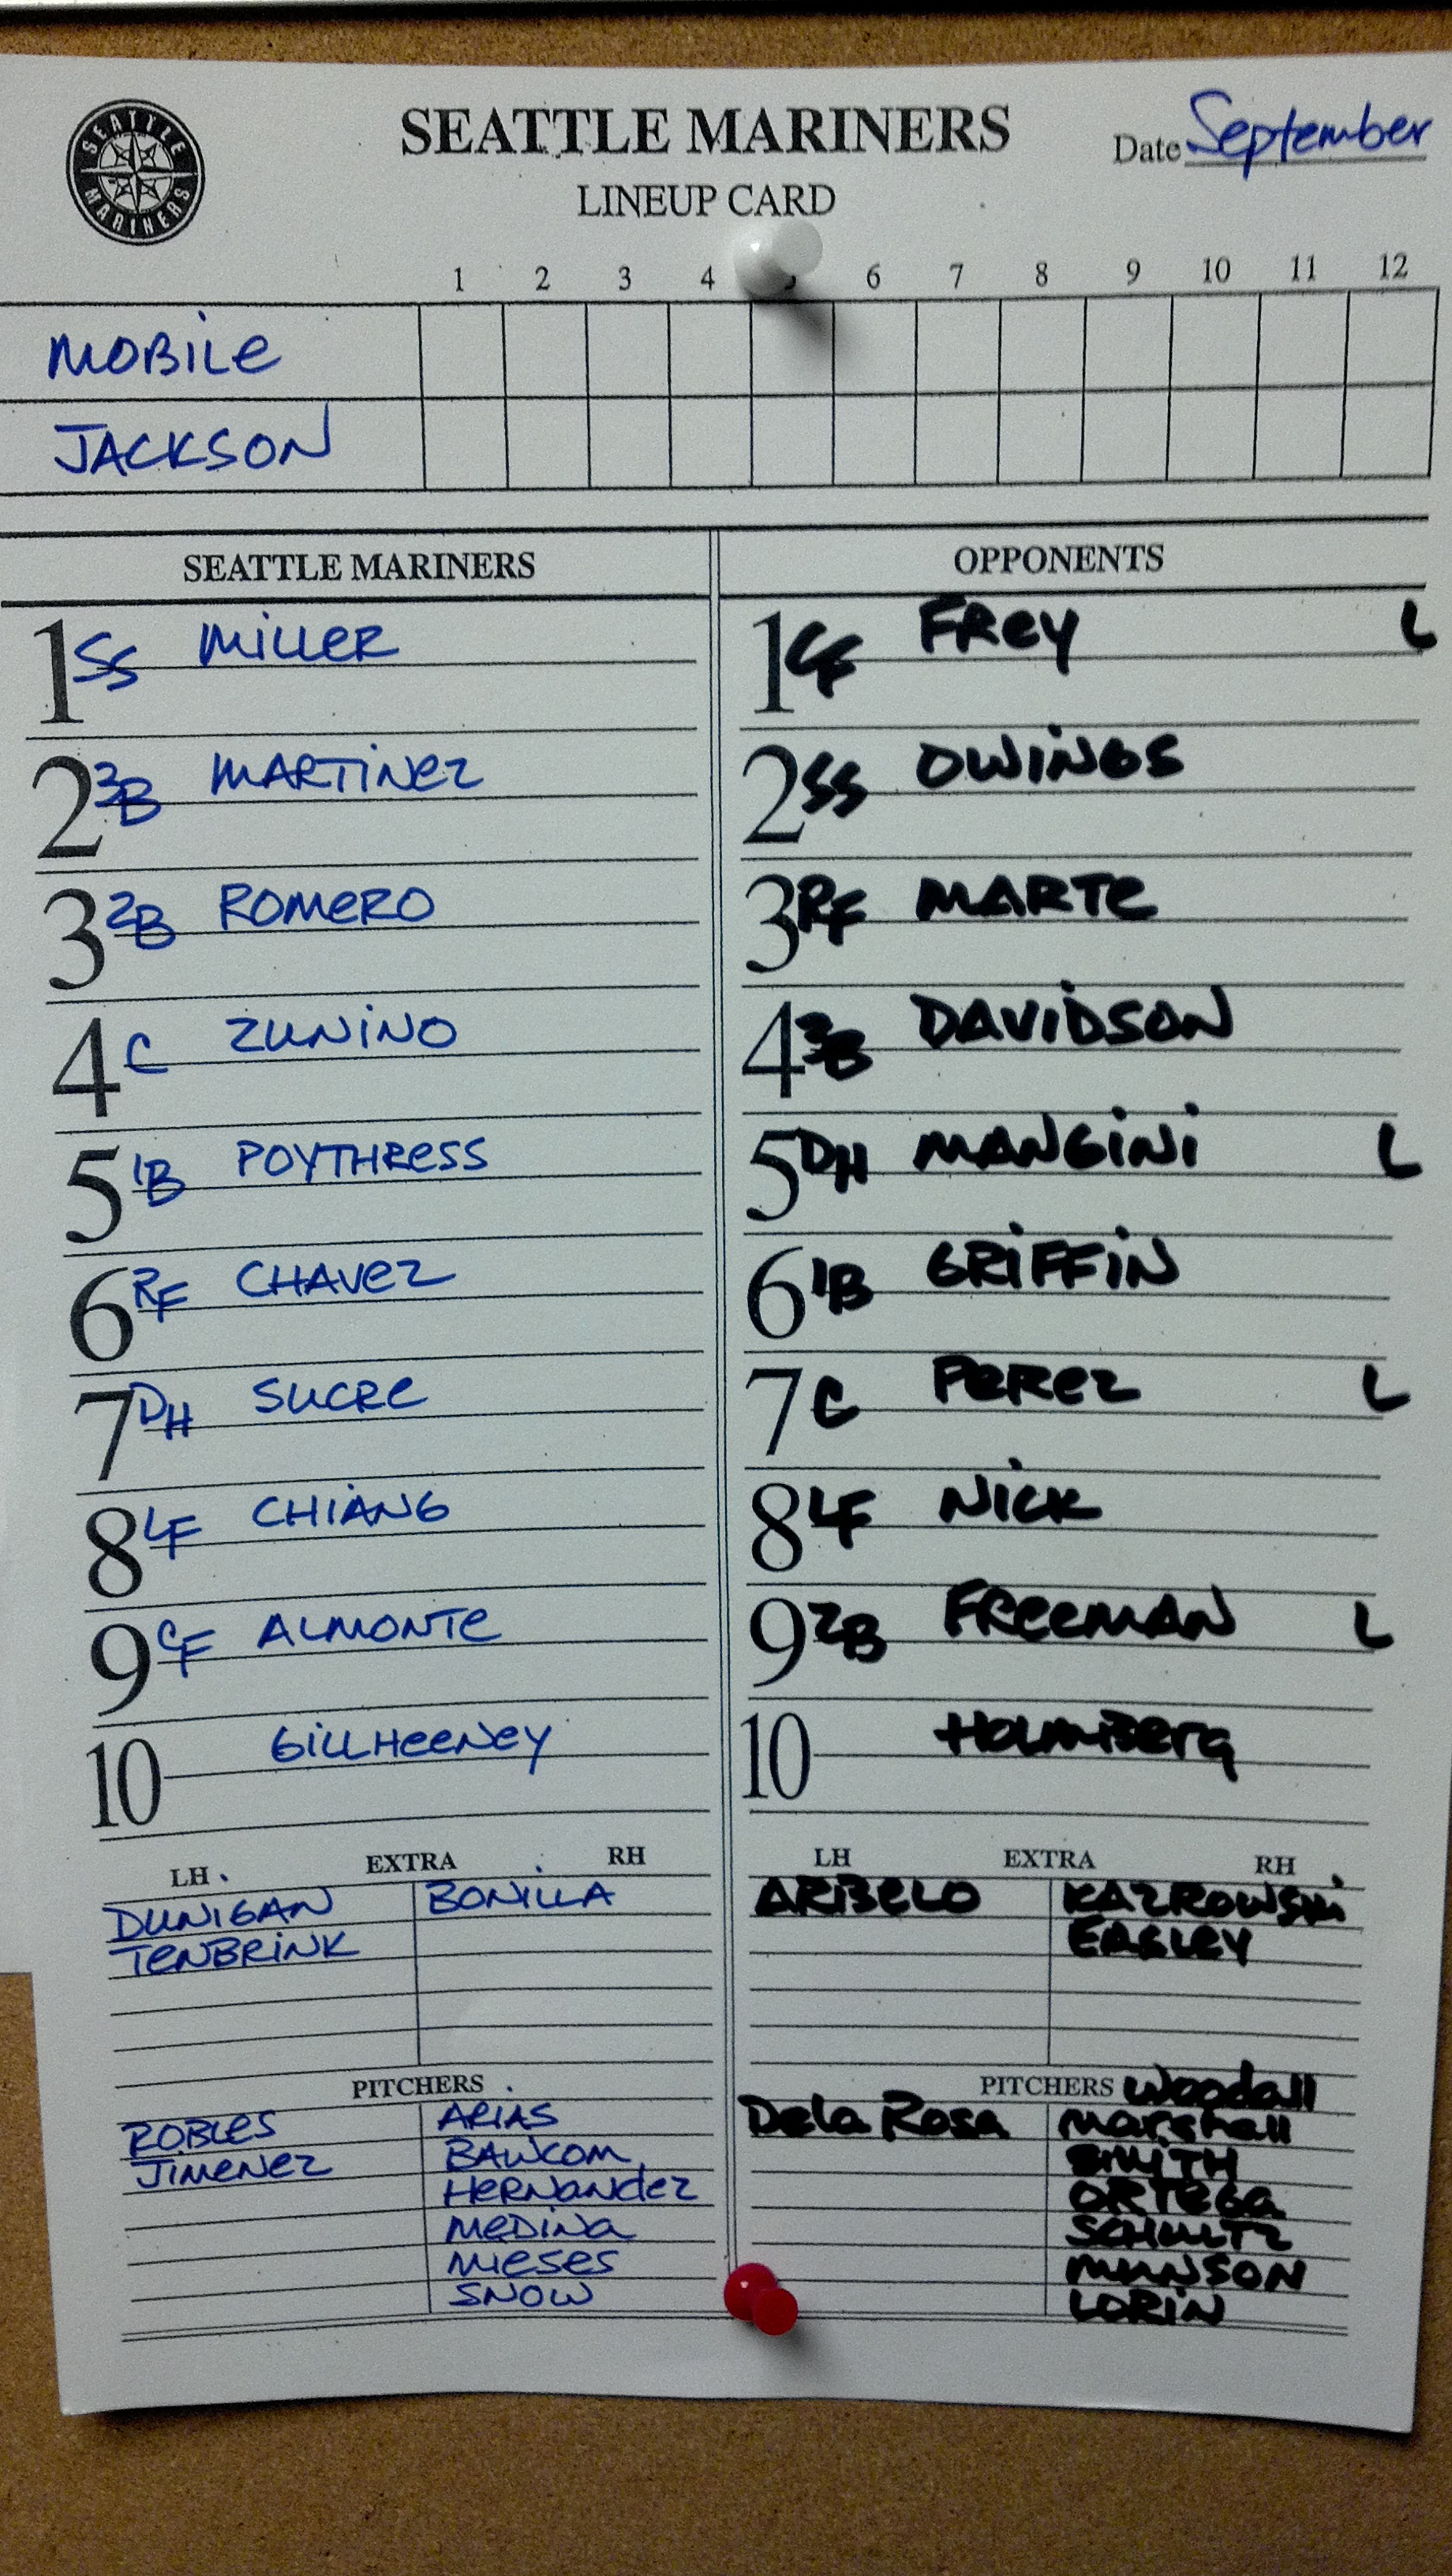 SEATTLE MARINERS
SEATTLE MARINERS
Date September
LINEUP CARD
1 2 3 4 6 7 8 9 10 11 12
MOBILE
JACKSON
SEATTLE MARINERS
1 SS MILLER
2 3B MARTINEZ
3 2B ROMERO
4 C ZUNINO
5 1B POYTHRESS
6 RF CHAVEZ
7 DH SUCRE
8 LF CHIANG
9 CF ALMONTE
10 GILLHEENEY
LH EXTRA RH
DUNIGAN BONILLA
TENBRINK
PITCHERS
ROBLES ARIAS
JIMENEZ BAWCOM
HERNANDEZ
MEDINA
MIESES
SNOW
OPPONENTS
1 CF FREY L
2 SS OWINGS
3 RF MARTE
4 3B DAVIDSON
5 DH MANGINI L
6 1B GRIFFIN
7 C PEREZ L
8 LF NICK
9 2B FREEMAN L
10 HOLMBERG
LH EXTRA RH
ARBELO KAZROWSKI
EASLEY
PITCHERS Woodall
Dela Rosa Marshall
SMITH
ORTEGA
SCHULTZ
MUNSON
LORIN